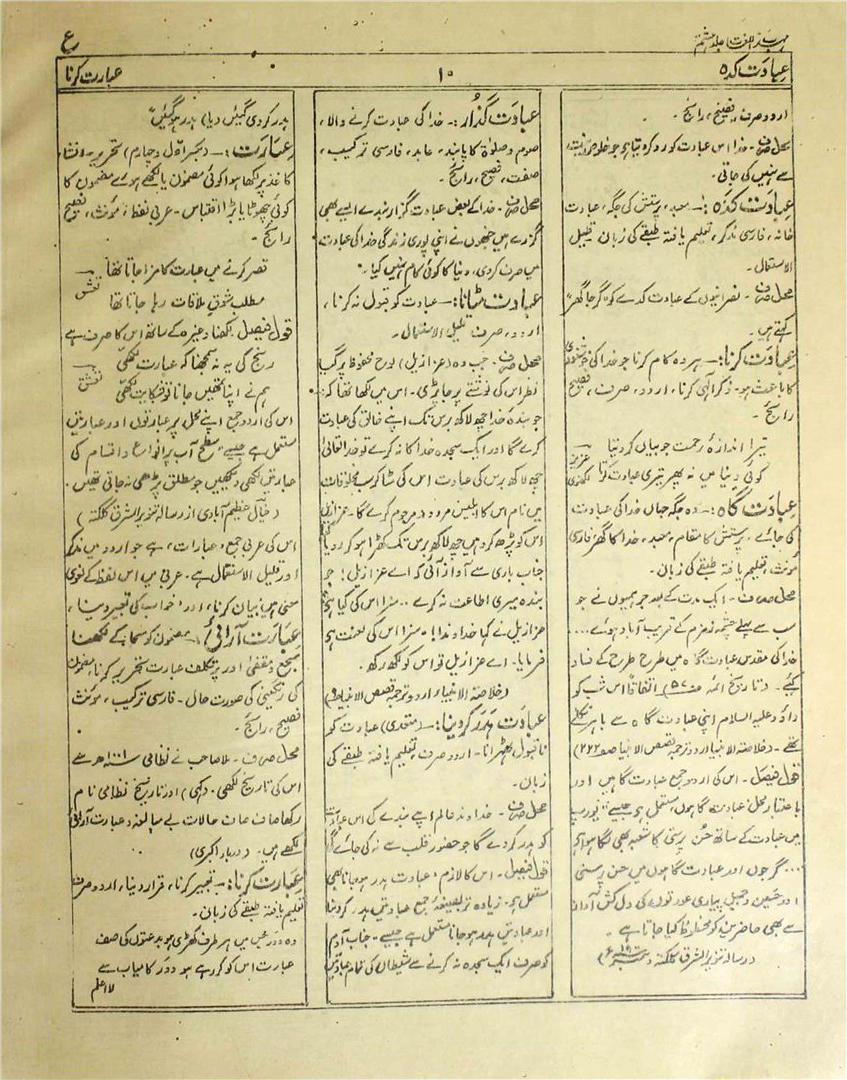 مہذب اللغات جلد ہشتم
ع
عبادت کدہ
۱۰
عبارت کرنا
اردو صرف، فصیح، رائج۔
محل صرف۔ خدا اس عبادت کو رد کر دیتا ہے جو خلوص نیت
سے نہیں کی جاتی۔
عبادت کدہ :۔ معبد، پرستش کی جگہ، عبادت
خانہ، فارسی مذکر، تعلیم یافتہ طبقے کی زبان، قلیل
الاستعمال۔
محل صرف۔ نصرانیوں کے عبادت کدے کو "گرجا گھر"
کہتے ہیں۔
عبادت کرنا :۔ ہر وہ کام کرنا جو خدا کی خوشنودی
کا باعث ہو۔ ذکر الٰہی کرنا، اردو، صرف، فصیح
رائج۔
تیرا اندازۂ رحمت جو بیاں کر دیتا
کوئی دنیا میں نہ پھر تیری عبادت کرتا
عزیز لکھنوی
عبادت گاہ :۔ وہ جگہ جہاں خدا کی عبادت
کی جائے۔ پرستش کا مقام، معبد، خدا کا گھر فارسی
مؤنث، تعلیم یافتہ طبقے کی زبان۔
محل صرف۔ ایک مدت کے بعد جرہمیوں نے جو
سب سے پہلے چشمہ زمزم کے قریب آباد ہوئے ....
خدا کی مقدس عبادت گاہ میں طرح طرح کے فساد
کیے۔ (تاریخ ائمہ) اتفاقاً اس شب کو
داؤد علیہ السلام اپنی عبادت گاہ سے باہر نکلے
تھے۔ (خلاصۃ الانبیا اردو ترجمہ قصص الانبیا صفحہ ۲۲۲)
قول فیصل۔ اس کی اردو جمع عبادت گاہیں اور
باعتبار محل عبادت گاہوں مستعمل ہے جیسے "یورپ
میں عبادت کے ساتھ حسن پرستی کا شعبہ بھی لگا ہوا ہے
.... گرجوں اور عبادت گاہوں میں حسن پرستی
اور حسین و جمیل پیاری عورتوں کی دل کش آواز
سے بھی حاضرین کو محظوظ کیا جاتا ہے۔
(رسالہ تنویر الشرق کلکتہ دسمبر)
عبادت گذار :۔ خدا کی عبادت کرنے والا،
صوم و صلوٰۃ کا پابند، عابد، فارسی ترکیب،
صفت، فصیح، رائج۔
محل صرف۔ خدا کے بعض عبادت گزار بندے ایسے بھی
گزرے ہیں جنھوں نے اپنی پوری زندگی خدا کی عبادت
میں صرف کر دی، دنیا کا کوئی کام نہیں کیا۔
عبادت مٹانا :۔ عبادت کو قبول نہ کرنا،
اردو، صرف قلیل الاستعمال۔
محل صرف۔ جب وہ (عزازیل) لوح محفوظ پر گیا
نظر اس کی نوشتے پر جا پڑی۔ اس میں لکھا تھا کہ
جو بندۂ خدا چھ لاکھ برس تک اپنے خالق کی عبادت
کرے گا اور ایک سجدہ خدا کا نہ کرے تو خدا تعالیٰ
چھ لاکھ برس کی عبادت اس کی مٹا کر سب مخلوقات
میں نام اس کا ابلیس مردود مرجوم کرے گا۔ عزازیل
اس کو پڑھ کر وہیں چھ لاکھ برس تک کھڑا ہو کر رویا
جناب باری سے آواز آئی کہ اے عزازیل! جو
بندہ میری اطاعت نہ کرے .. سزا اس کی کیا ہے
عزازیل نے کہا خداوندا! سزا اس کی لعنت ہے
فرمایا۔ اے عزازیل تو اس کو لکھ رکھ۔
(خلاصۃ الانبیا اردو ترجمہ قصص الانبیا ۹)
عبادت ہدر کر دینا :۔ (متعدی) عبادت کو
نا قبول ٹھہرانا۔ اردو صرف، تعلیم یافتہ طبقے کی
زبان۔
محل صرف۔ خداوند عالم اپنے بندے کی اس عبادت
کو ہدر کر دے گا جو حضور قلب سے نہ کی جائے گی
قول فیصل۔ اس کا لازم، عبادت ہدر ہو جانا بھی
مستعمل ہے۔ زیادہ تر بصیغۂ جمع عبادتیں ہدر کر دینا
اور عبادتیں ہدر ہو جانا مستعمل ہے جیسے۔ جناب آدم
کو صرف ایک سجدہ نہ کرنے سے شیطان کی تمام عبادتیں
ہدر کر دی گئیں دیا) ہدر ہو گئیں"
عبارت :۔ (بکسر اول و چہارم) تحریر، انشا
کاغذ پر لکھا ہوا کوئی مضمون یا لکھے ہوئے مضمون کا
کوئی چھوٹا یا بڑا اقتباس۔ عربی لفظ، مؤنث، فصیح
رائج۔
قصر کرنے میں عبارت کا مزا جاتا تھا
مطلب شوق ملاقات رہا جاتا تھا
تعشق
قول فیصل لکھنا وغیرہ کے ساتھ اس کا صرف ہے
رنج کی یہ نہ سمجھنا کہ عبارت لکھی
ہم نے اپنا تمھیں جانا تو شکایت لکھی
تعشق
اس کی اردو جمع اپنے محل پر عبارتوں اور عبارتیں
مستعمل ہے جیسے "سطح آب پر انواع و اقسام کی
عبارتیں لکھی دیکھیں جو مطلق پڑھی نہ جاتی تھیں۔
(خیال عظیم آبادی از رسالہ تنویر الشرق کلکتہ)
اس کی عربی جمع، عبارات، ہے جو اردو میں مذکر
اور قلیل الاستعمال ہے۔ عربی میں اس لفظ کے لغوی
معنی ہیں بیان کرنا، اور خواب کی تعبیر دینا،
عبارت آرائی :۔ مضمون کو سجا کے لکھنا
مسجع و مقفیٰ اور پر تکلف عبارت تحریر کرنا، مضمون
کی رنگینی کی صورت حال۔ فارسی ترکیب، مؤنث
فصیح، رائج۔
محل صرف۔ ملا صاحب نے نظامی ۱۰۰۱ھ سے
اس کی تاریخ لکھی۔ (کہی) اور تاریخ نظامی نام
رکھا صاف صاف حالات بے مبالغہ و عبارت آرائی
لکھے ہیں۔ (دربار اکبری)
عبارت کرنا :۔ تعبیر کرنا، قرار دینا، اردو صرف
تعلیم یافتہ طبقے کی زبان۔
عبارت اس کو کر رہے ہو دور کامیاب سے
لا اعلم